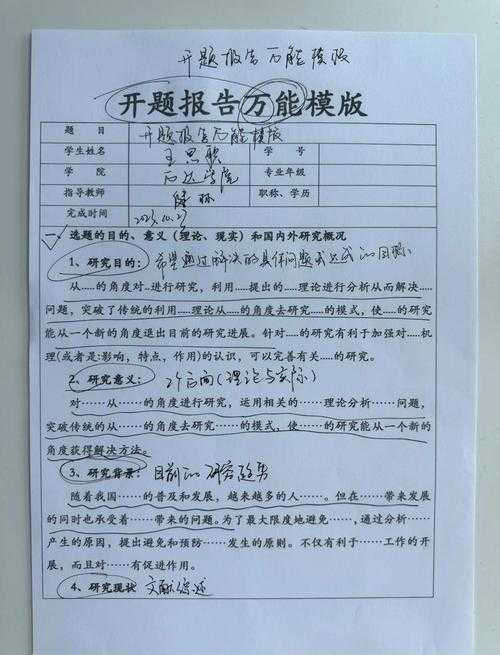 开题报告万能模版
开题报告万能模版
题 目 开题报告万能模版
学生姓名 王思 学 号
学 院 石达学院 专业年级
指导教师 职称、学历
完成时间 2023.10.27
一、选题的目的、意义（理论、现实）和国内外研究概况
1、研究目的：希望通过解决的具体问题或达成的目标
从……的角度对…进行研究，利用……提出的…理论进行分析从而解决……
问题，突破了传统的利用……理论从……的角度去研究…的模式，使……的研究
能从一个新的角度退出目前的研究进展。针对……的研究有利于加强对……机
理(或者是:影响，特点，作用)的认识，可以完善有关……的研究。
2、研究意义：2个方面(理论与实际)
对……从……的角度进行研究，运用相关的……理论分析……问题，
突破传统的从……的角度去研究……的模式，使……的研究能从一个新的
角度获得解决方法。
3、研究背景：目前的研究趋势
随着我国……的普及和发展，越来越多的人……。但在……带来发展
的同时也承受着……带来的问题。为了最大限度地避免……，通过分析……
产生的原因，提出避免和预防……发生的原则。不仅有利于……工作的开
展，而且对……有促进作用。
4、研究现状 文献综述